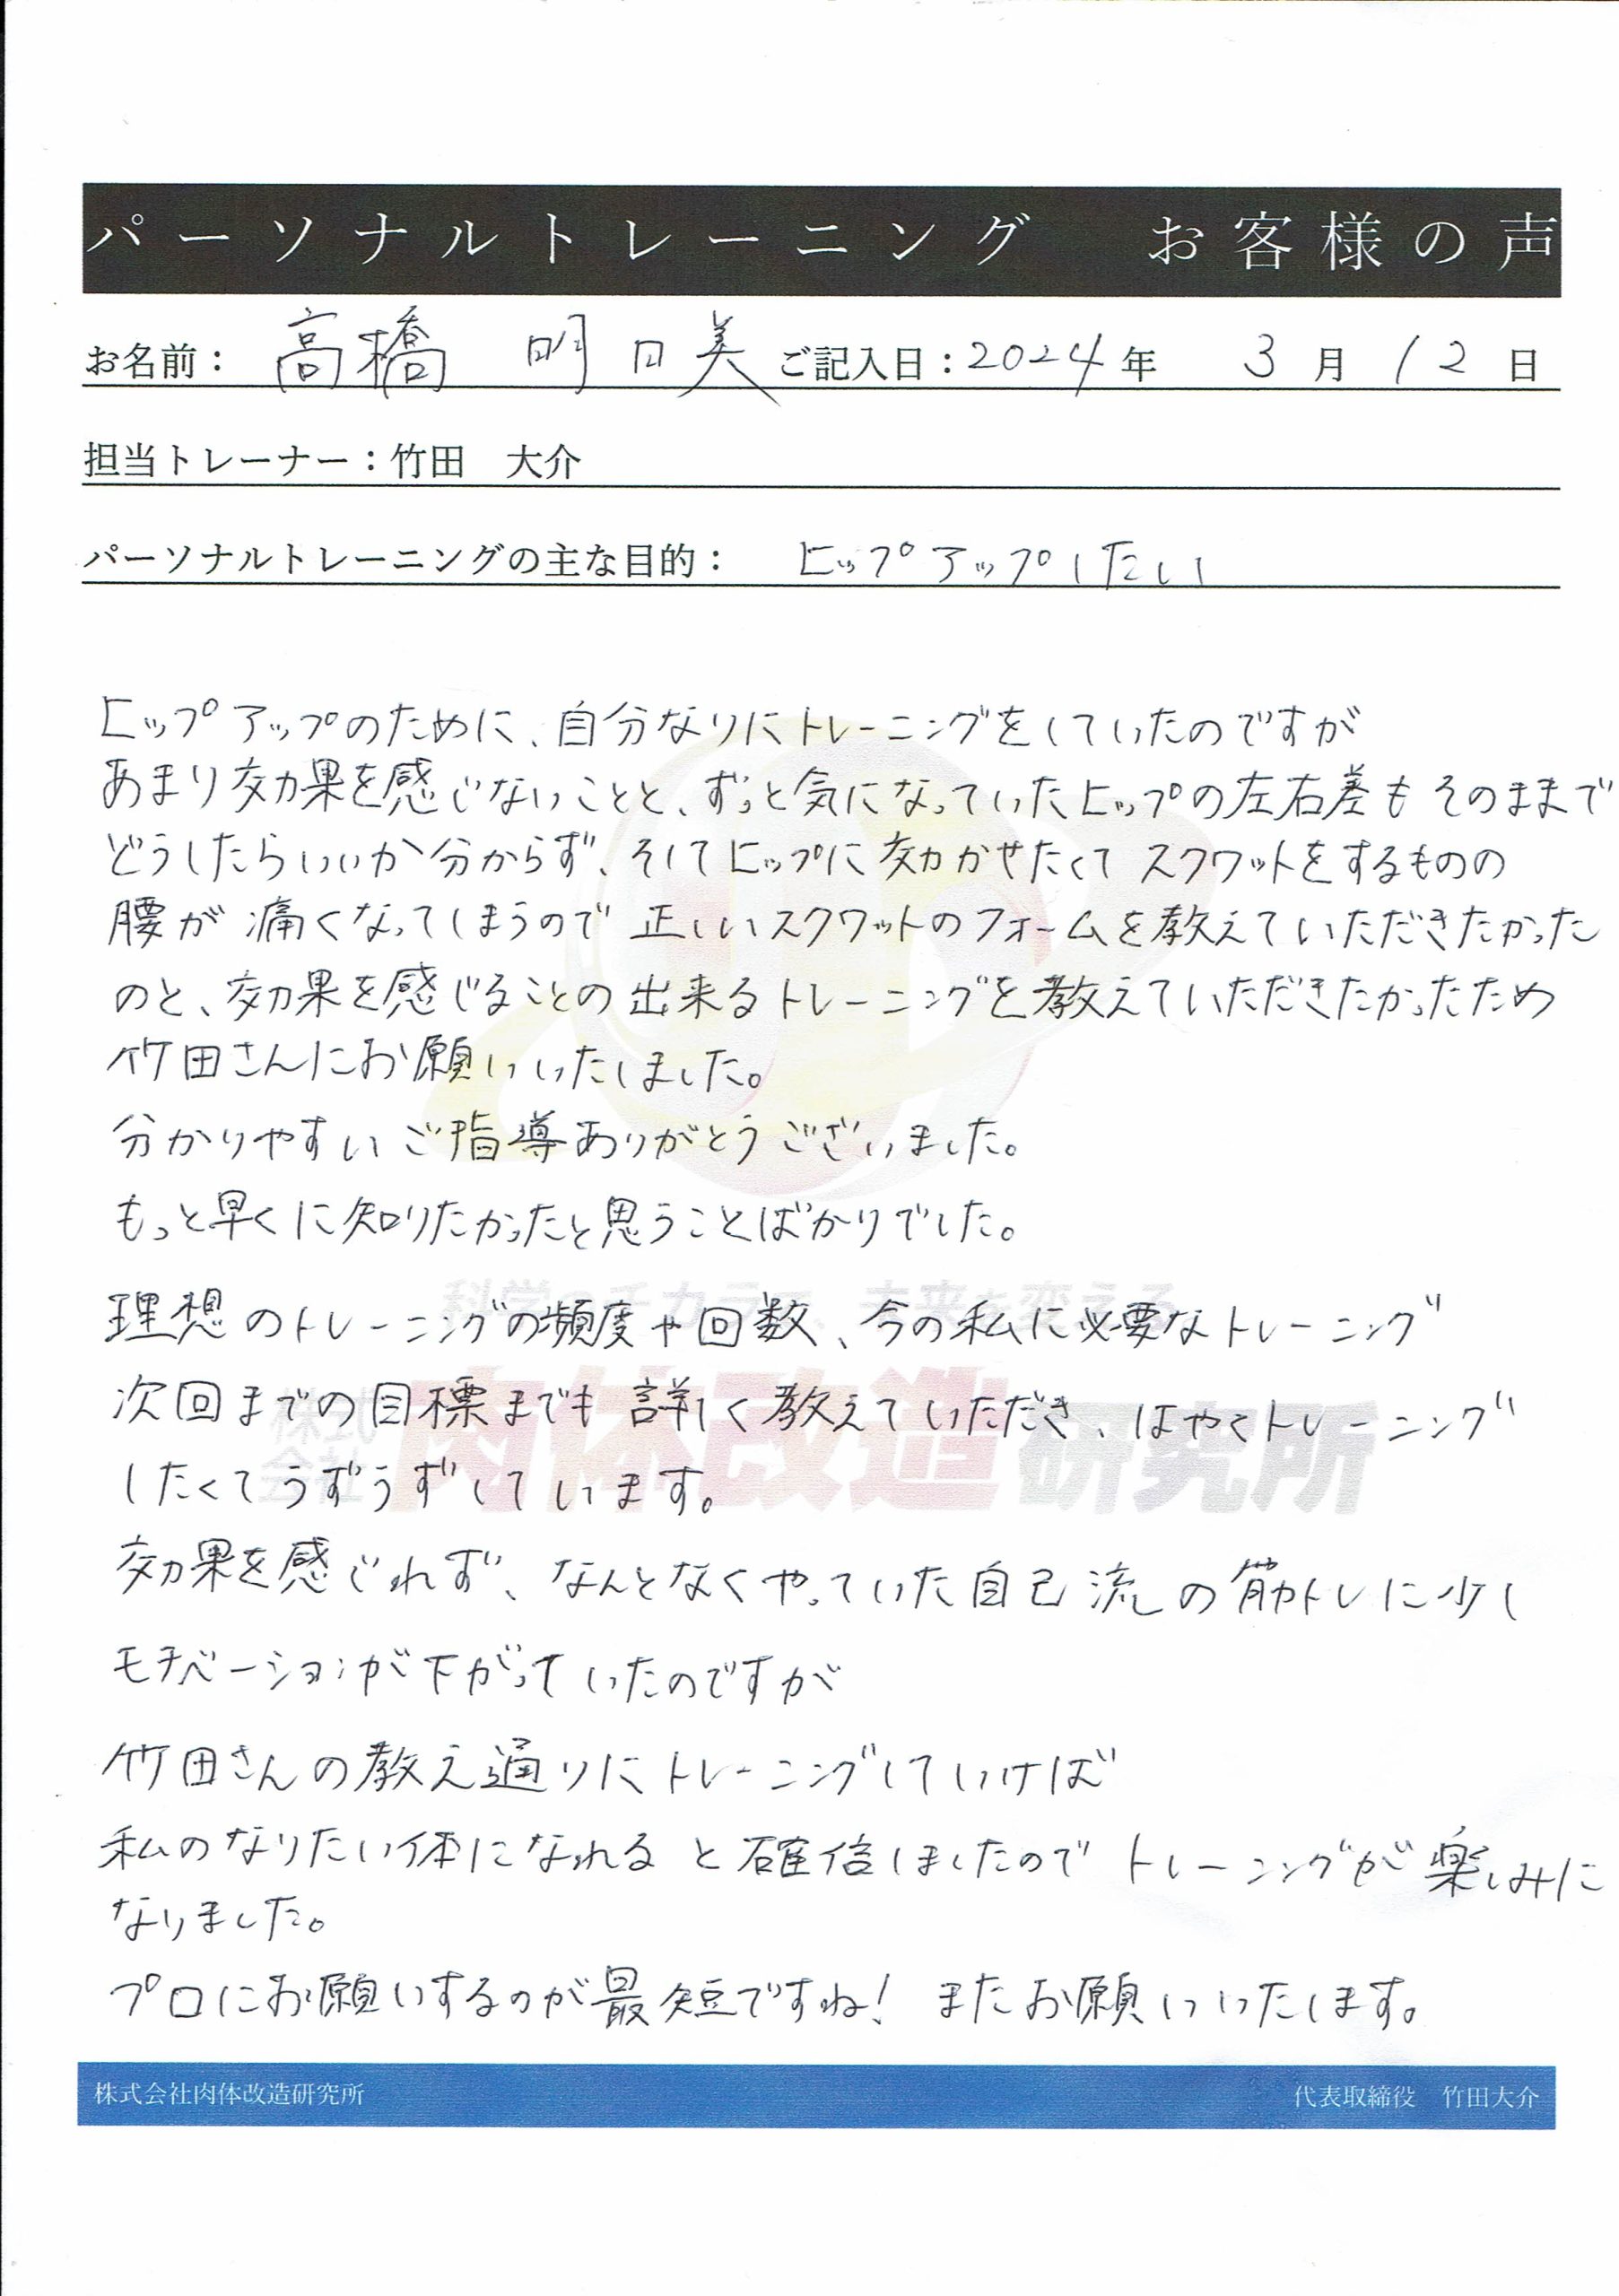 パーソナルトレーニング　お客様の声
お名前： 高橋 明日美 ご記入日：2024年 3月12日
担当トレーナー：竹田　大介
パーソナルトレーニングの主な目的： ヒップアップしたい
ヒップアップのために、自分なりにトレーニングをしていたのですが
あまり効果を感じないことと、ずっと気になっていたヒップの左右差もそのままで
どうしたらいいか分からず、そしてヒップに効かせたくてスクワットをするものの
腰が痛くなってしまうので正しいスクワットのフォームを教えていただきたかった
のと、効果を感じることの出来るトレーニングを教えていただきたかったため
竹田さんにお願いいたしました。
分かりやすいご指導ありがとうございました。
もっと早くに知りたかったと思うことばかりでした。
科学のチカラで、未来を変える。
理想のトレーニングの頻度や回数、今の私に必要なトレーニング
次回までの目標までも詳しく教えていただき、はやくトレーニング
株式会社 肉体改造研究所
したくてうずうずしています。
効果を感じれず、なんとなくやっていた自己流の筋トレに少し
モチベーションが下がっていたのですが
竹田さんの教え通りにトレーニングしていけば
私のなりたい体になれると確信しましたのでトレーニングが楽しみに
なりました。
プロにお願いするのが最短ですね！ またお願いいたします。
株式会社肉体改造研究所 代表取締役　竹田大介